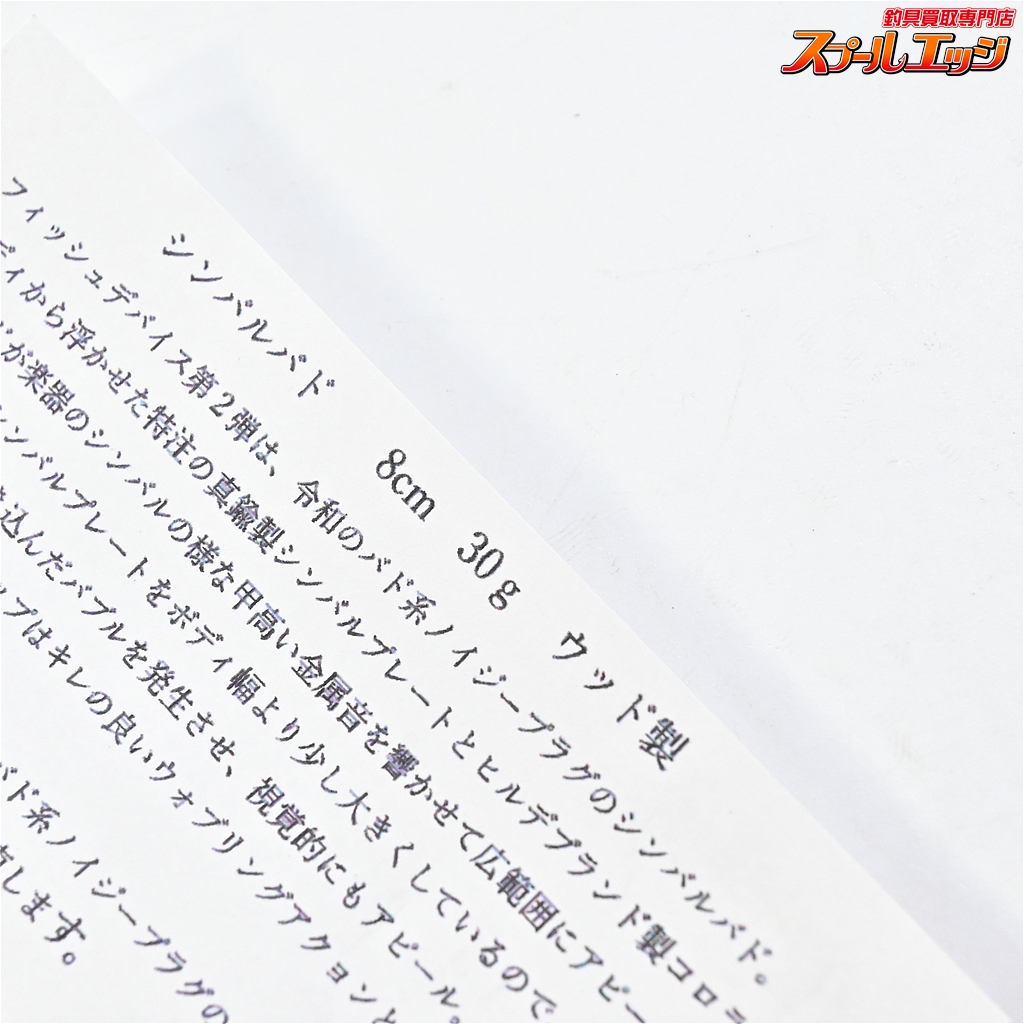 釣具買取専門店
スプールエッジ
シンバルバド 8cm 30g ウッド製
フィッシュデバイス第2弾は、令和のバド系ノイジープラグのシンバルバド。
ディから浮かせた特注の真鍮製シンバルプレートとヒルデブランド製コロラ
が楽器のシンバルの様な甲高い金属音を響かせて広範囲にアピー
シンバルプレートをボディ幅より少し大きくしているので
き込んだバブルを発生させ、視覚的にもアピール。
ップはキレの良いウォブリングアクションと
バド系ノイジープラグの
します。